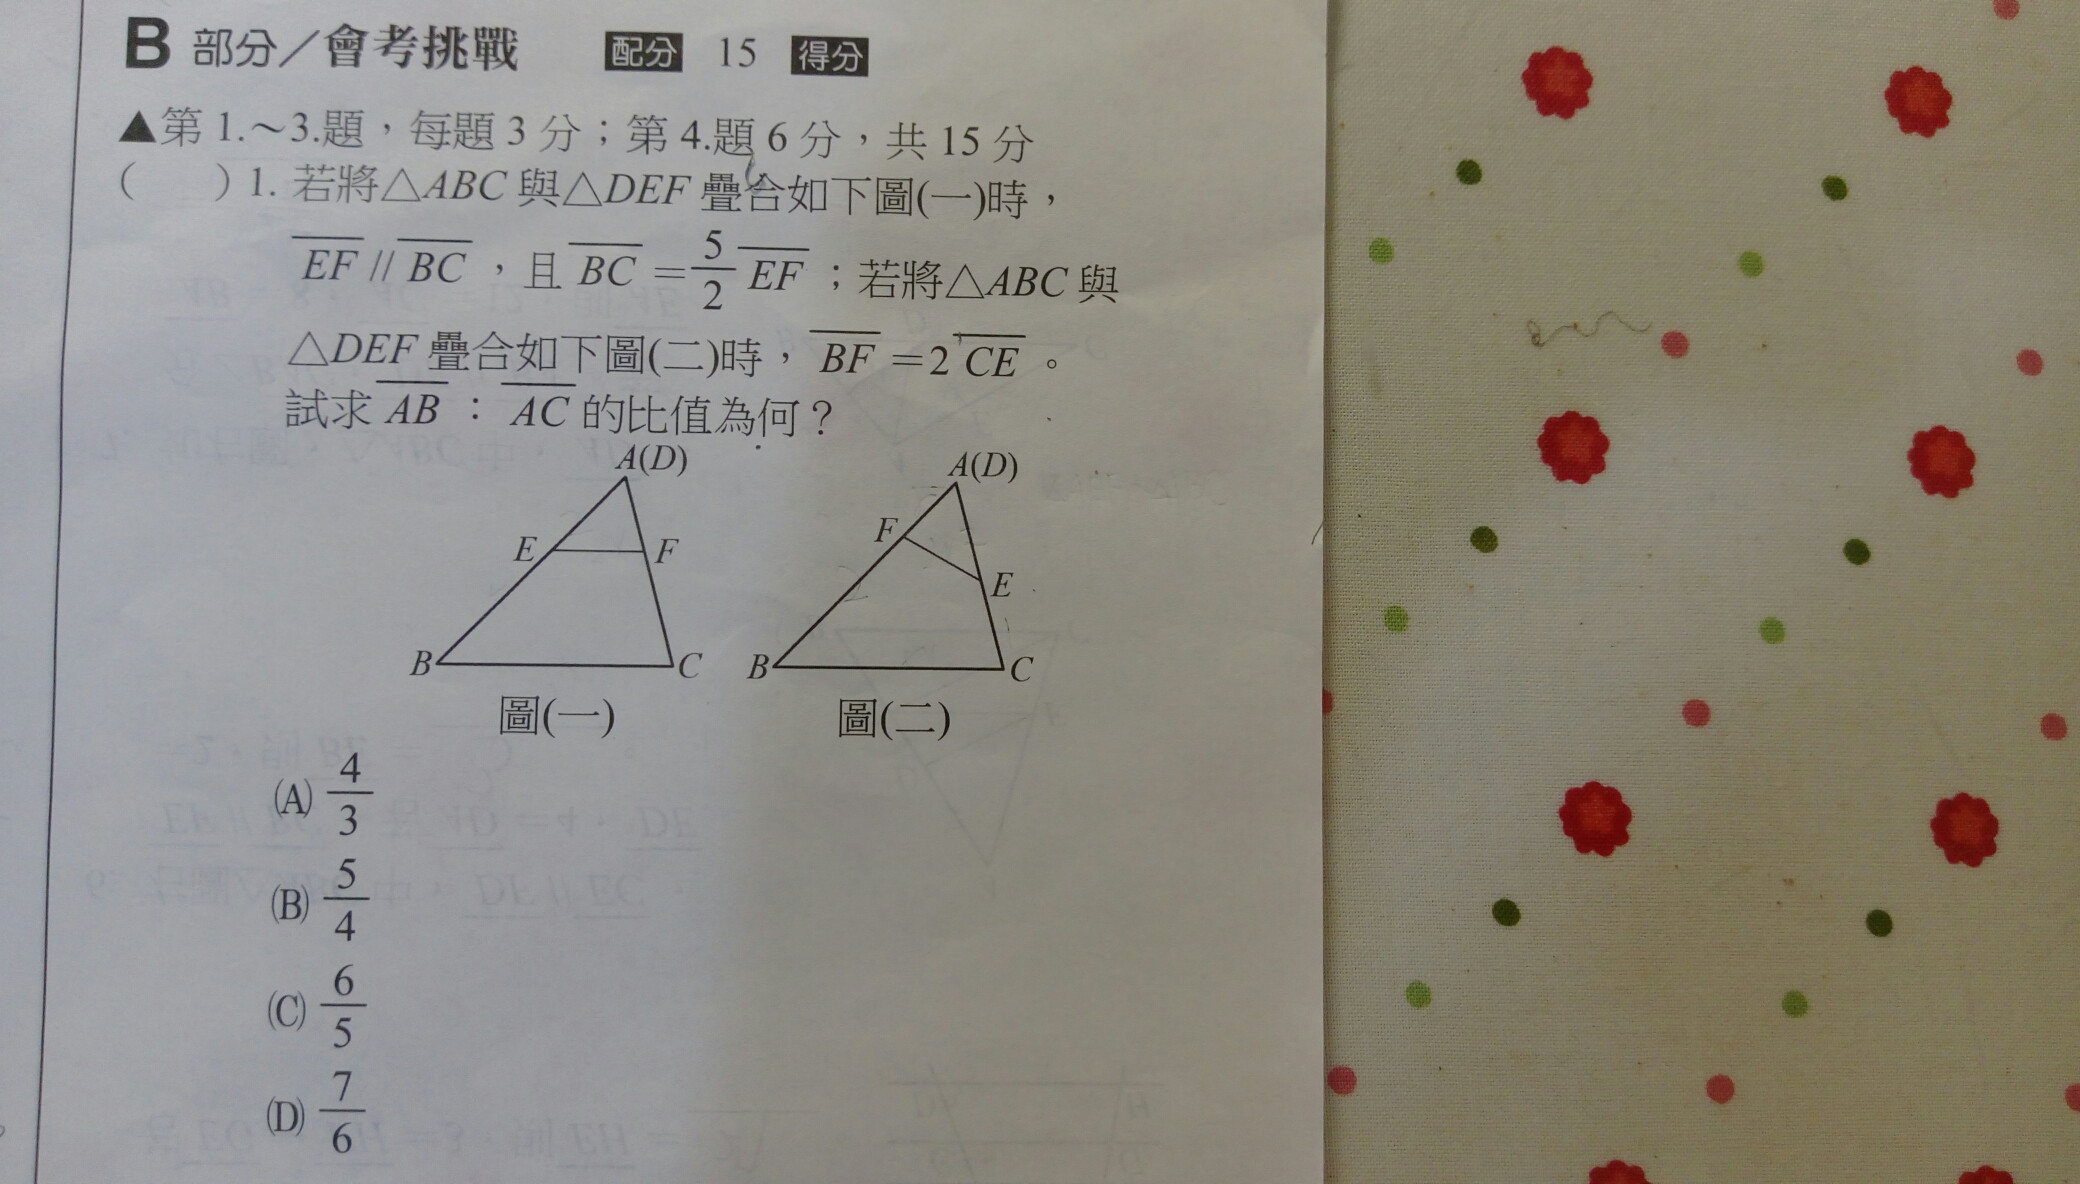 B 部分／會考挑戰 配分 15 得分
▲第 1.～3.題，每題 3 分；第 4.題 6 分，共 15 分
( ) 1. 若將△ABC 與△DEF 疊合如下圖(一)時，
EF // BC，且 BC = 5/2 EF；若將△ABC 與
△DEF 疊合如下圖(二)時，BF = 2 CE。
試求 AB : AC 的比值為何？
A(D) A(D)
E F F E
B C B C
圖(一) 圖(二)
(A) 4/3
(B) 5/4
(C) 6/5
(D) 7/6